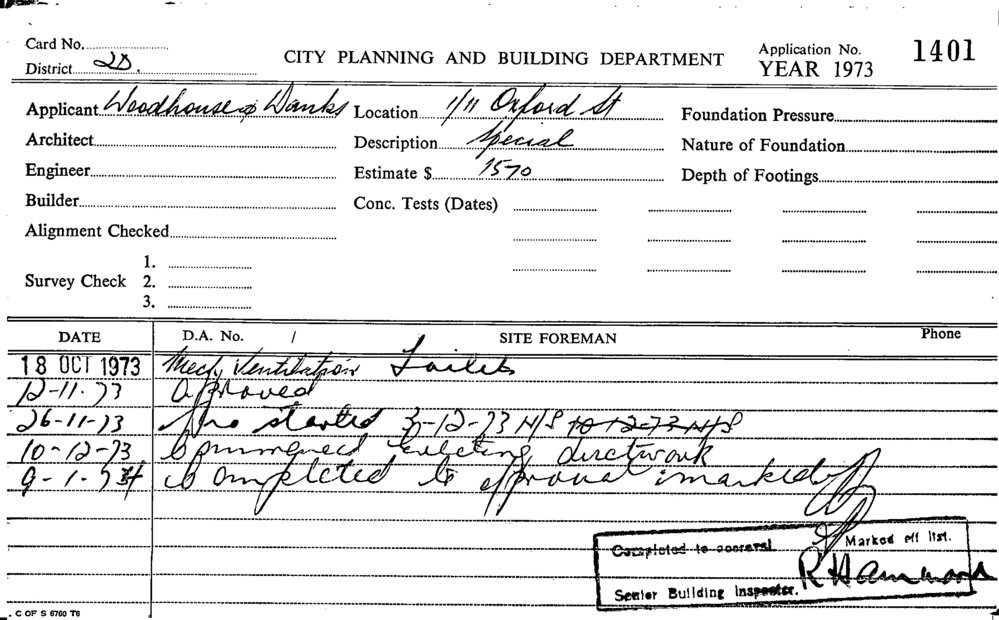 Card No.
District 2D.
CITY PLANNING AND BUILDING DEPARTMENT
Application No.
YEAR 1973
1401
Applicant Woodhouse & Danks
Location 1/11 Oxford St
Foundation Pressure
Architect
Description Special
Nature of Foundation
Engineer
Estimate $ 1570
Depth of Footings
Builder
Conc. Tests (Dates)
Alignment Checked
Survey Check
1.
2.
3.
DATE
D.A. No. /
SITE FOREMAN
Phone
18 OCT 1973 Mech Ventilation Toilets
12-11-73 Approved
26-11-73 started 3-12-73 N/S 10-12-73 N/S
10-12-73 Commenced erecting ductwork
9-1-74 Completed to approval marked
Completed to approval.
Marked off list.
R Hammond
Senior Building Inspector.
C OF S 6760 T6